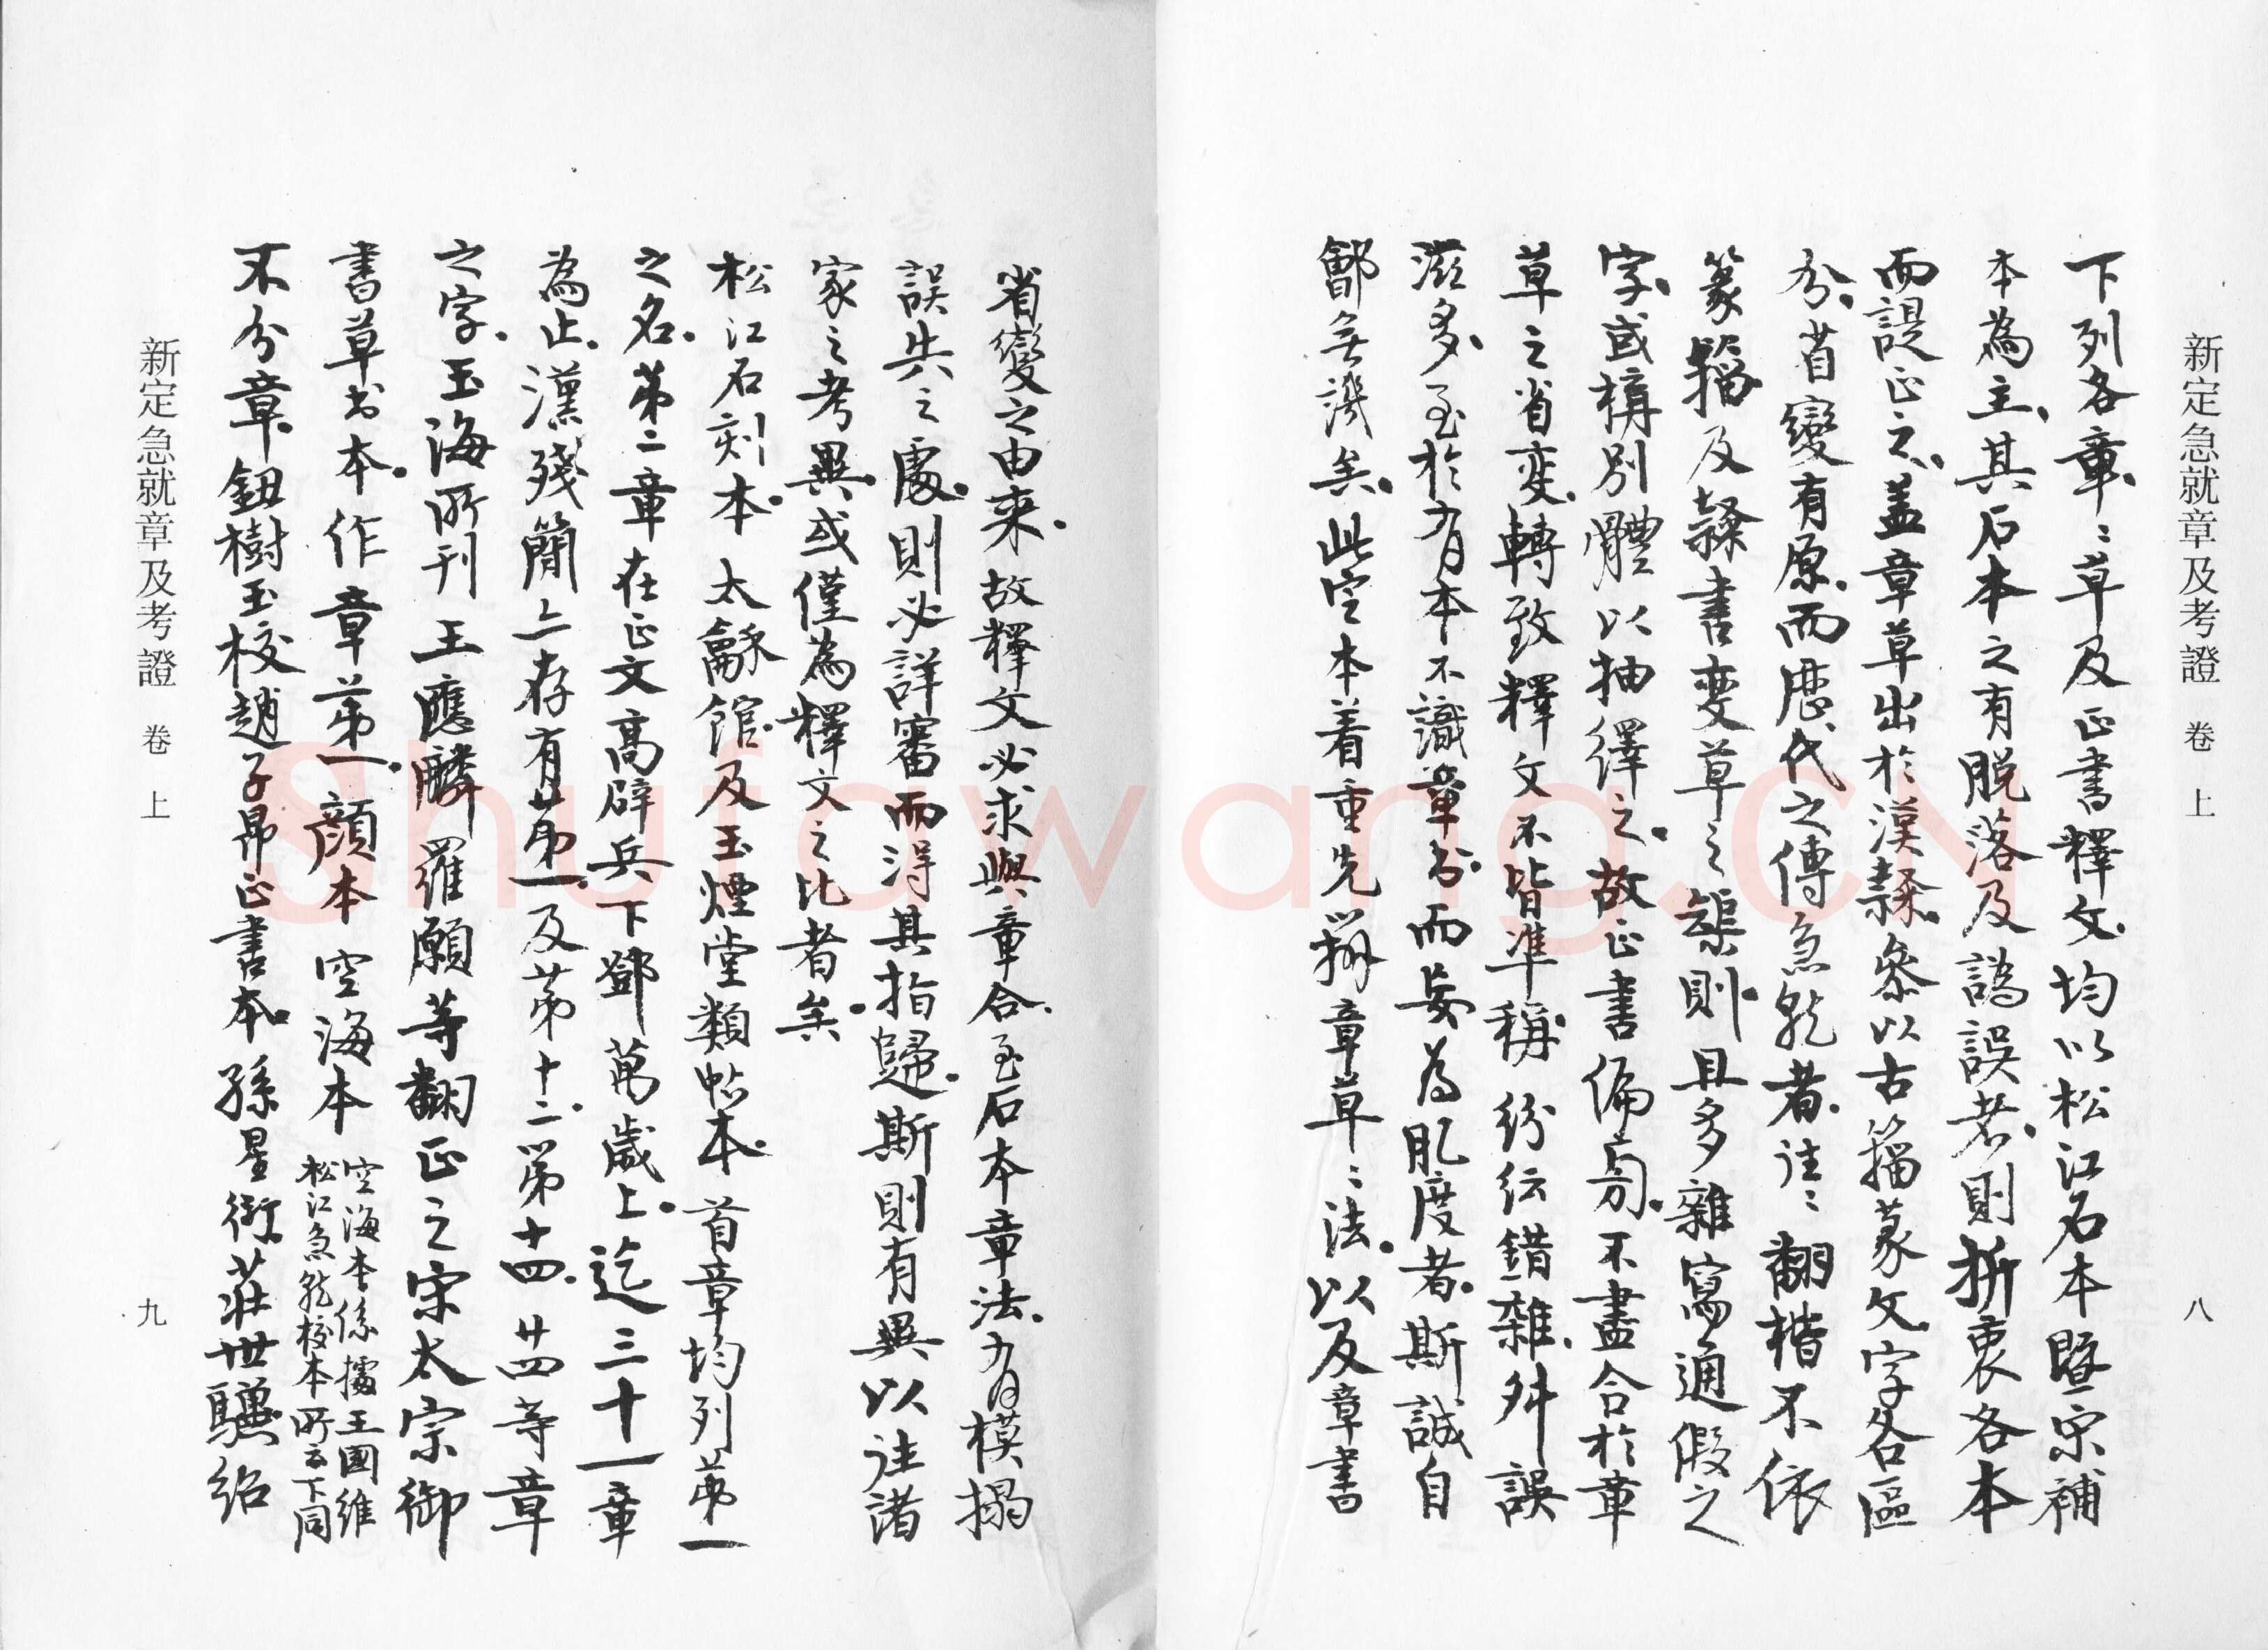 新定急就章及考證 卷上 八
下列各章、章草及正書釋文、均以松江石本暨宋補
本為主、其石本之有脫落及譌誤者、則折衷各本
而諟正之、蓋章草出於漢隸、叅以古籀篆文、字各區
分、省變有原、而歷代之傳急就者、往往翻楷不依
篆籀及隸書變草之榘則、且多雜寫通假之
字、或構別體以抽繹之、故正書偏旁、不盡合於章
草之省变、轉致釋文不皆準稱、紛紜錯雜、舛誤
滋多、至於有本不識章书、而妄為肊度者、斯誠自
鄶無譏矣、此定本着重先搦章草草法、以及章書
省變之由来、故釋文必求與章合、至石本章法、有模搨
誤失之處、則必詳審而得其指歸、斯則有異以往諸
家之考異、或僅為釋文之比者矣、
松江石刻本、太龢館及玉煙堂類帖本、首章均列苐一
之名、苐二章在正文高辟兵下鄧萬歲上、迄三十一章
為止、漢殘簡上存有苐一、及苐十二、苐十四、廿四等章
之字、玉海所刊王應麟羅願等翻正之宋太宗御
書草书本、作章苐一、顏本空海本 空海本係據王國維
松江急就校本所云下同
不分章、鈕樹玉校趙子昂正書本、孫星衍、莊世驥、紹
新定急就章及考證 卷上 九
Shufawang.CN